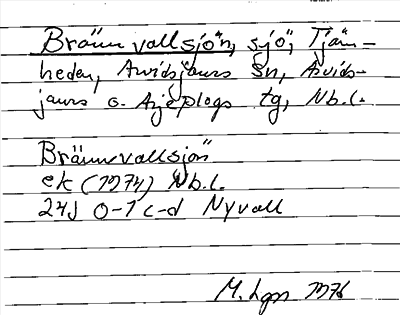 Brännvallsjön, sjö, Tjäm-
heden, Arvidsjaurs Sn, Arvids-
jaurs o. Arjeplogs tg, Nb.l.
Brännvallsjön
ek (1974) Nb.l.
24J 0-1 c-d Nyvall
M. Lgn 1976